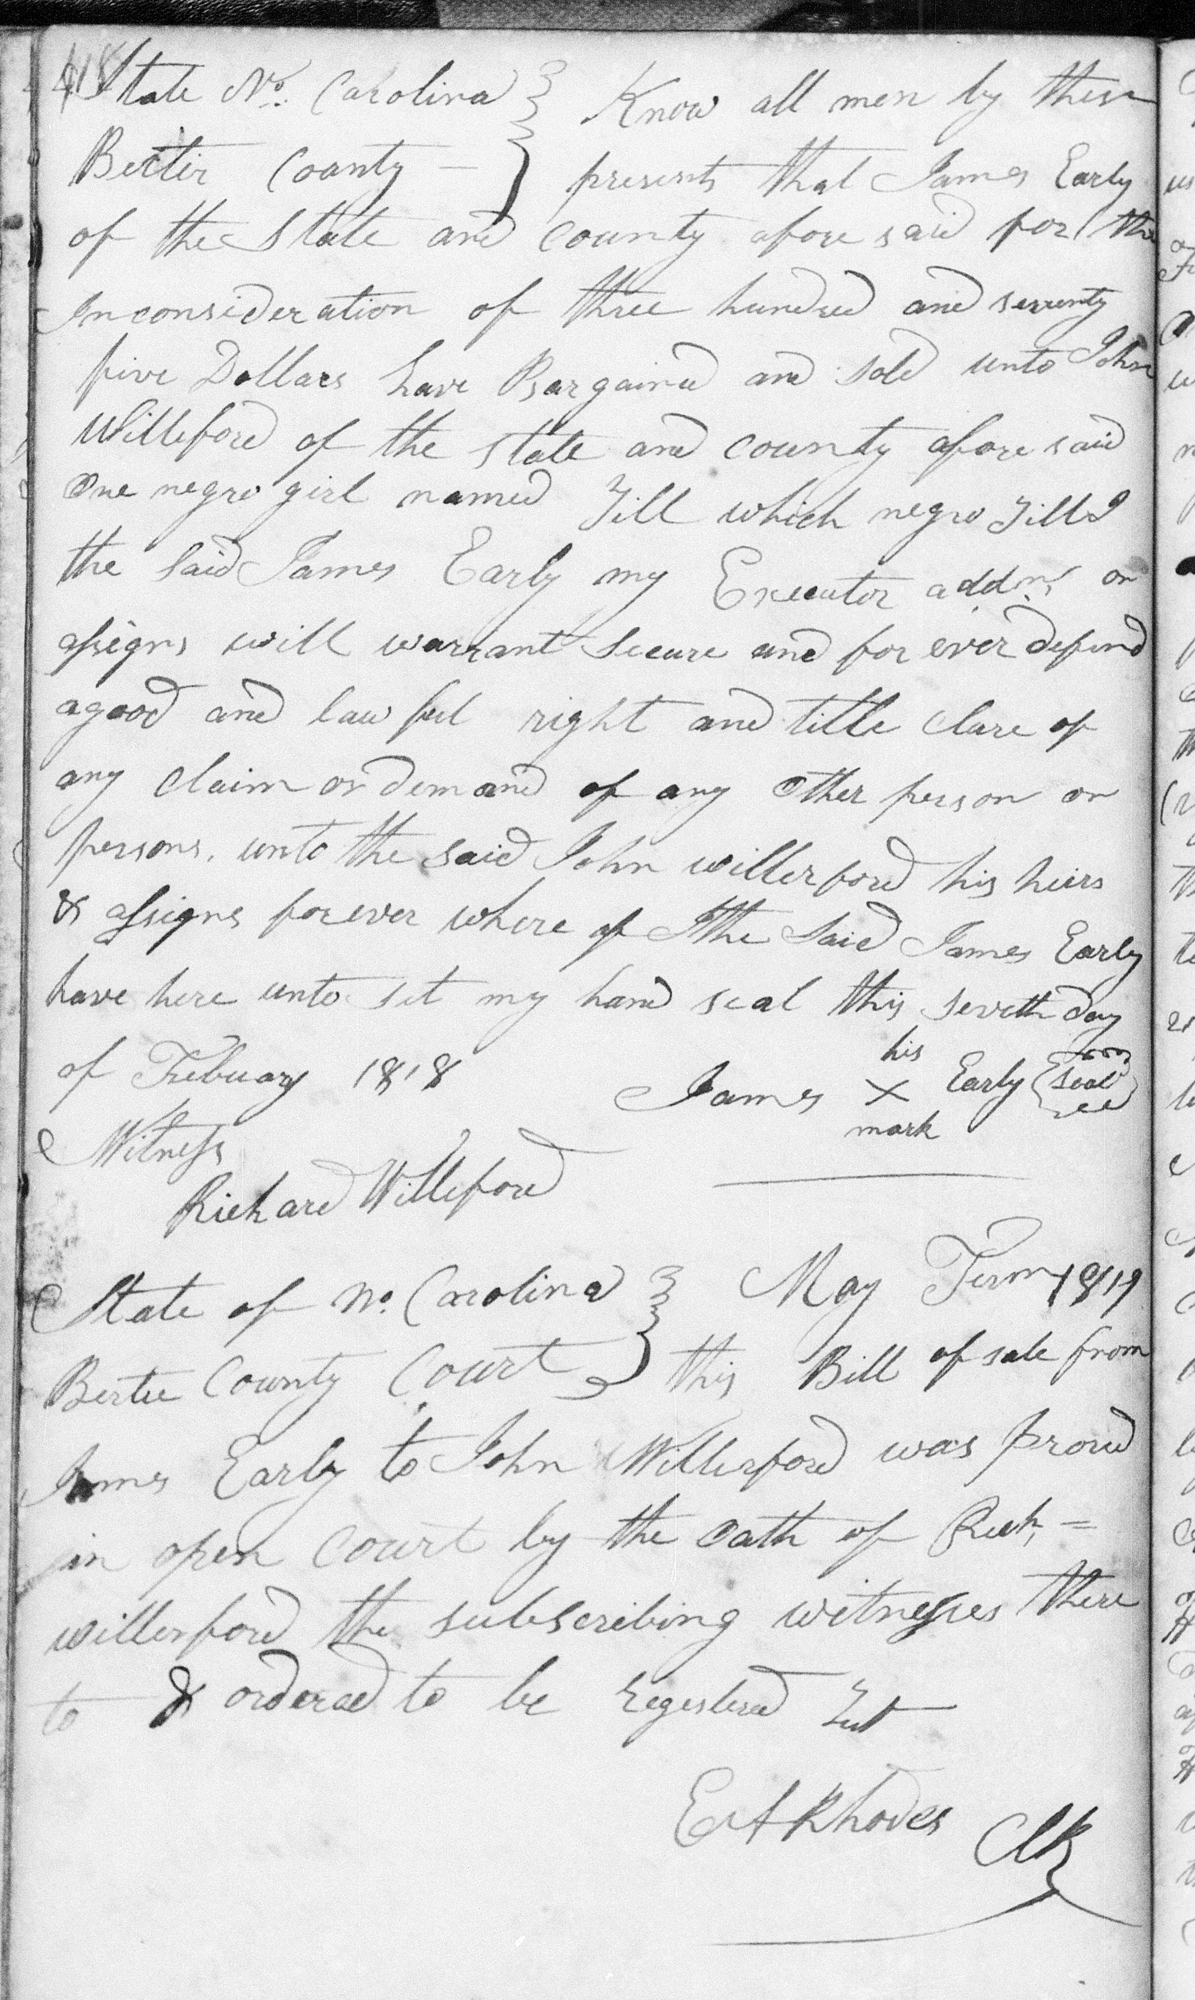 418
State No. Carolina } Know all men by these
Bertie County — } presents that James Early
of the State and County afore said for the
Inconsideration of three hundred and seventy
five Dollars have Bargained and Sold unto John
Willeford of the state and county afore said
One negro girl named Till which negro Till I
the Said James Early my Executor addms or
assigns will warrant Secure and for ever defend
a good and law ful right and title clare of
any claim or demand of any Other person or
persons. unto the Said John willerford his heirs
& assigns forever where of I the Said James Early
have here unto set my hand seal this seveth day
of Frebuary 1818 James his X mark Early Seal
Witness
Richard Willeford
State of No. Carolina } May Term 1819
Bertie County Court } this Bill of sale from
James Early to John Willerford was proved
in open Court by the Oath of Rich, =
willerford the subscribing witnesses there
to & ordered to be Registered Test
E A Rhodes Clk